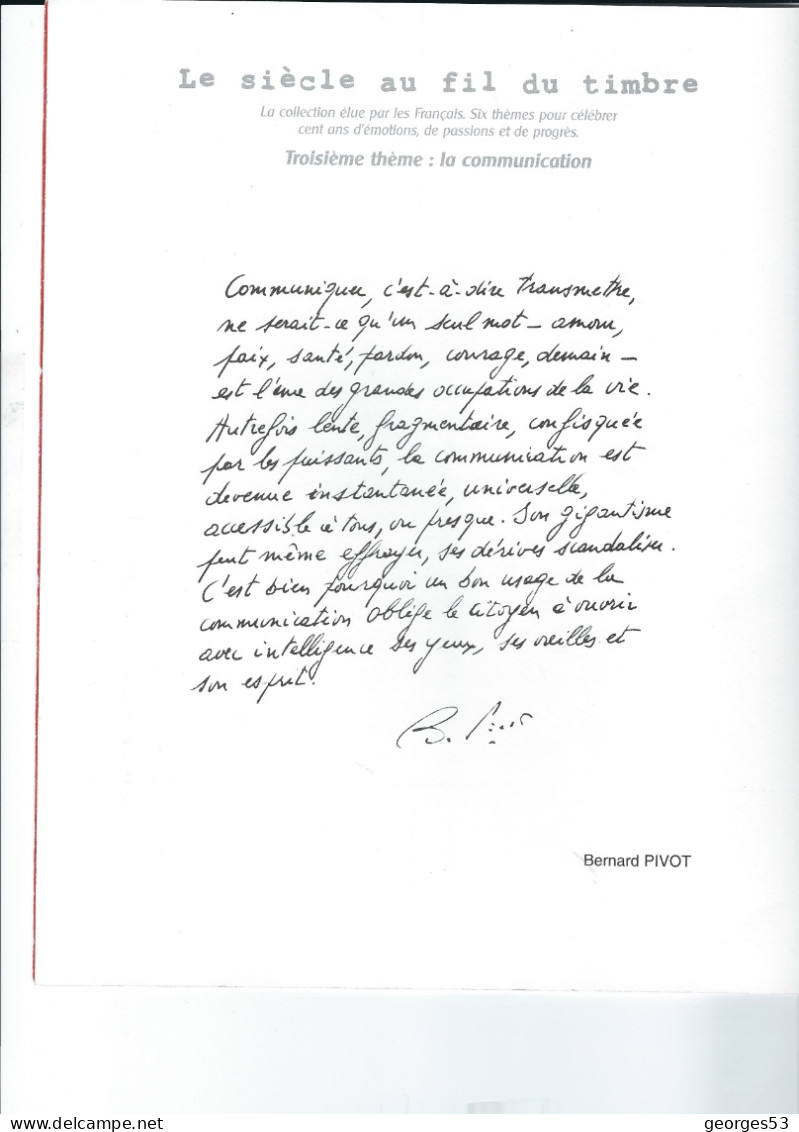 Le siècle au fil du timbre
La collection élue par les Français. Six thèmes pour célébrer
cent ans d'émotions, de passions et de progrès.
Troisième thème : la communication
Communiquer, c'est-à-dire transmettre,
ne serait-ce qu'un seul mot – amour,
paix, santé, pardon, courage, demain –
est l'une des grandes occupations de la vie.
Autrefois lente, fragmentaire, confisquée
par les puissants, la communication est
devenue instantanée, universelle,
accessible à tous, ou presque. Son gigantisme
peut même effrayer, ses dérives scandaliser.
C'est bien pourquoi un bon usage de la
communication oblige le citoyen à ouvrir
avec intelligence ses yeux, ses oreilles et
son esprit.
B. Pivot
Bernard PIVOT
delcampe.net
georges53